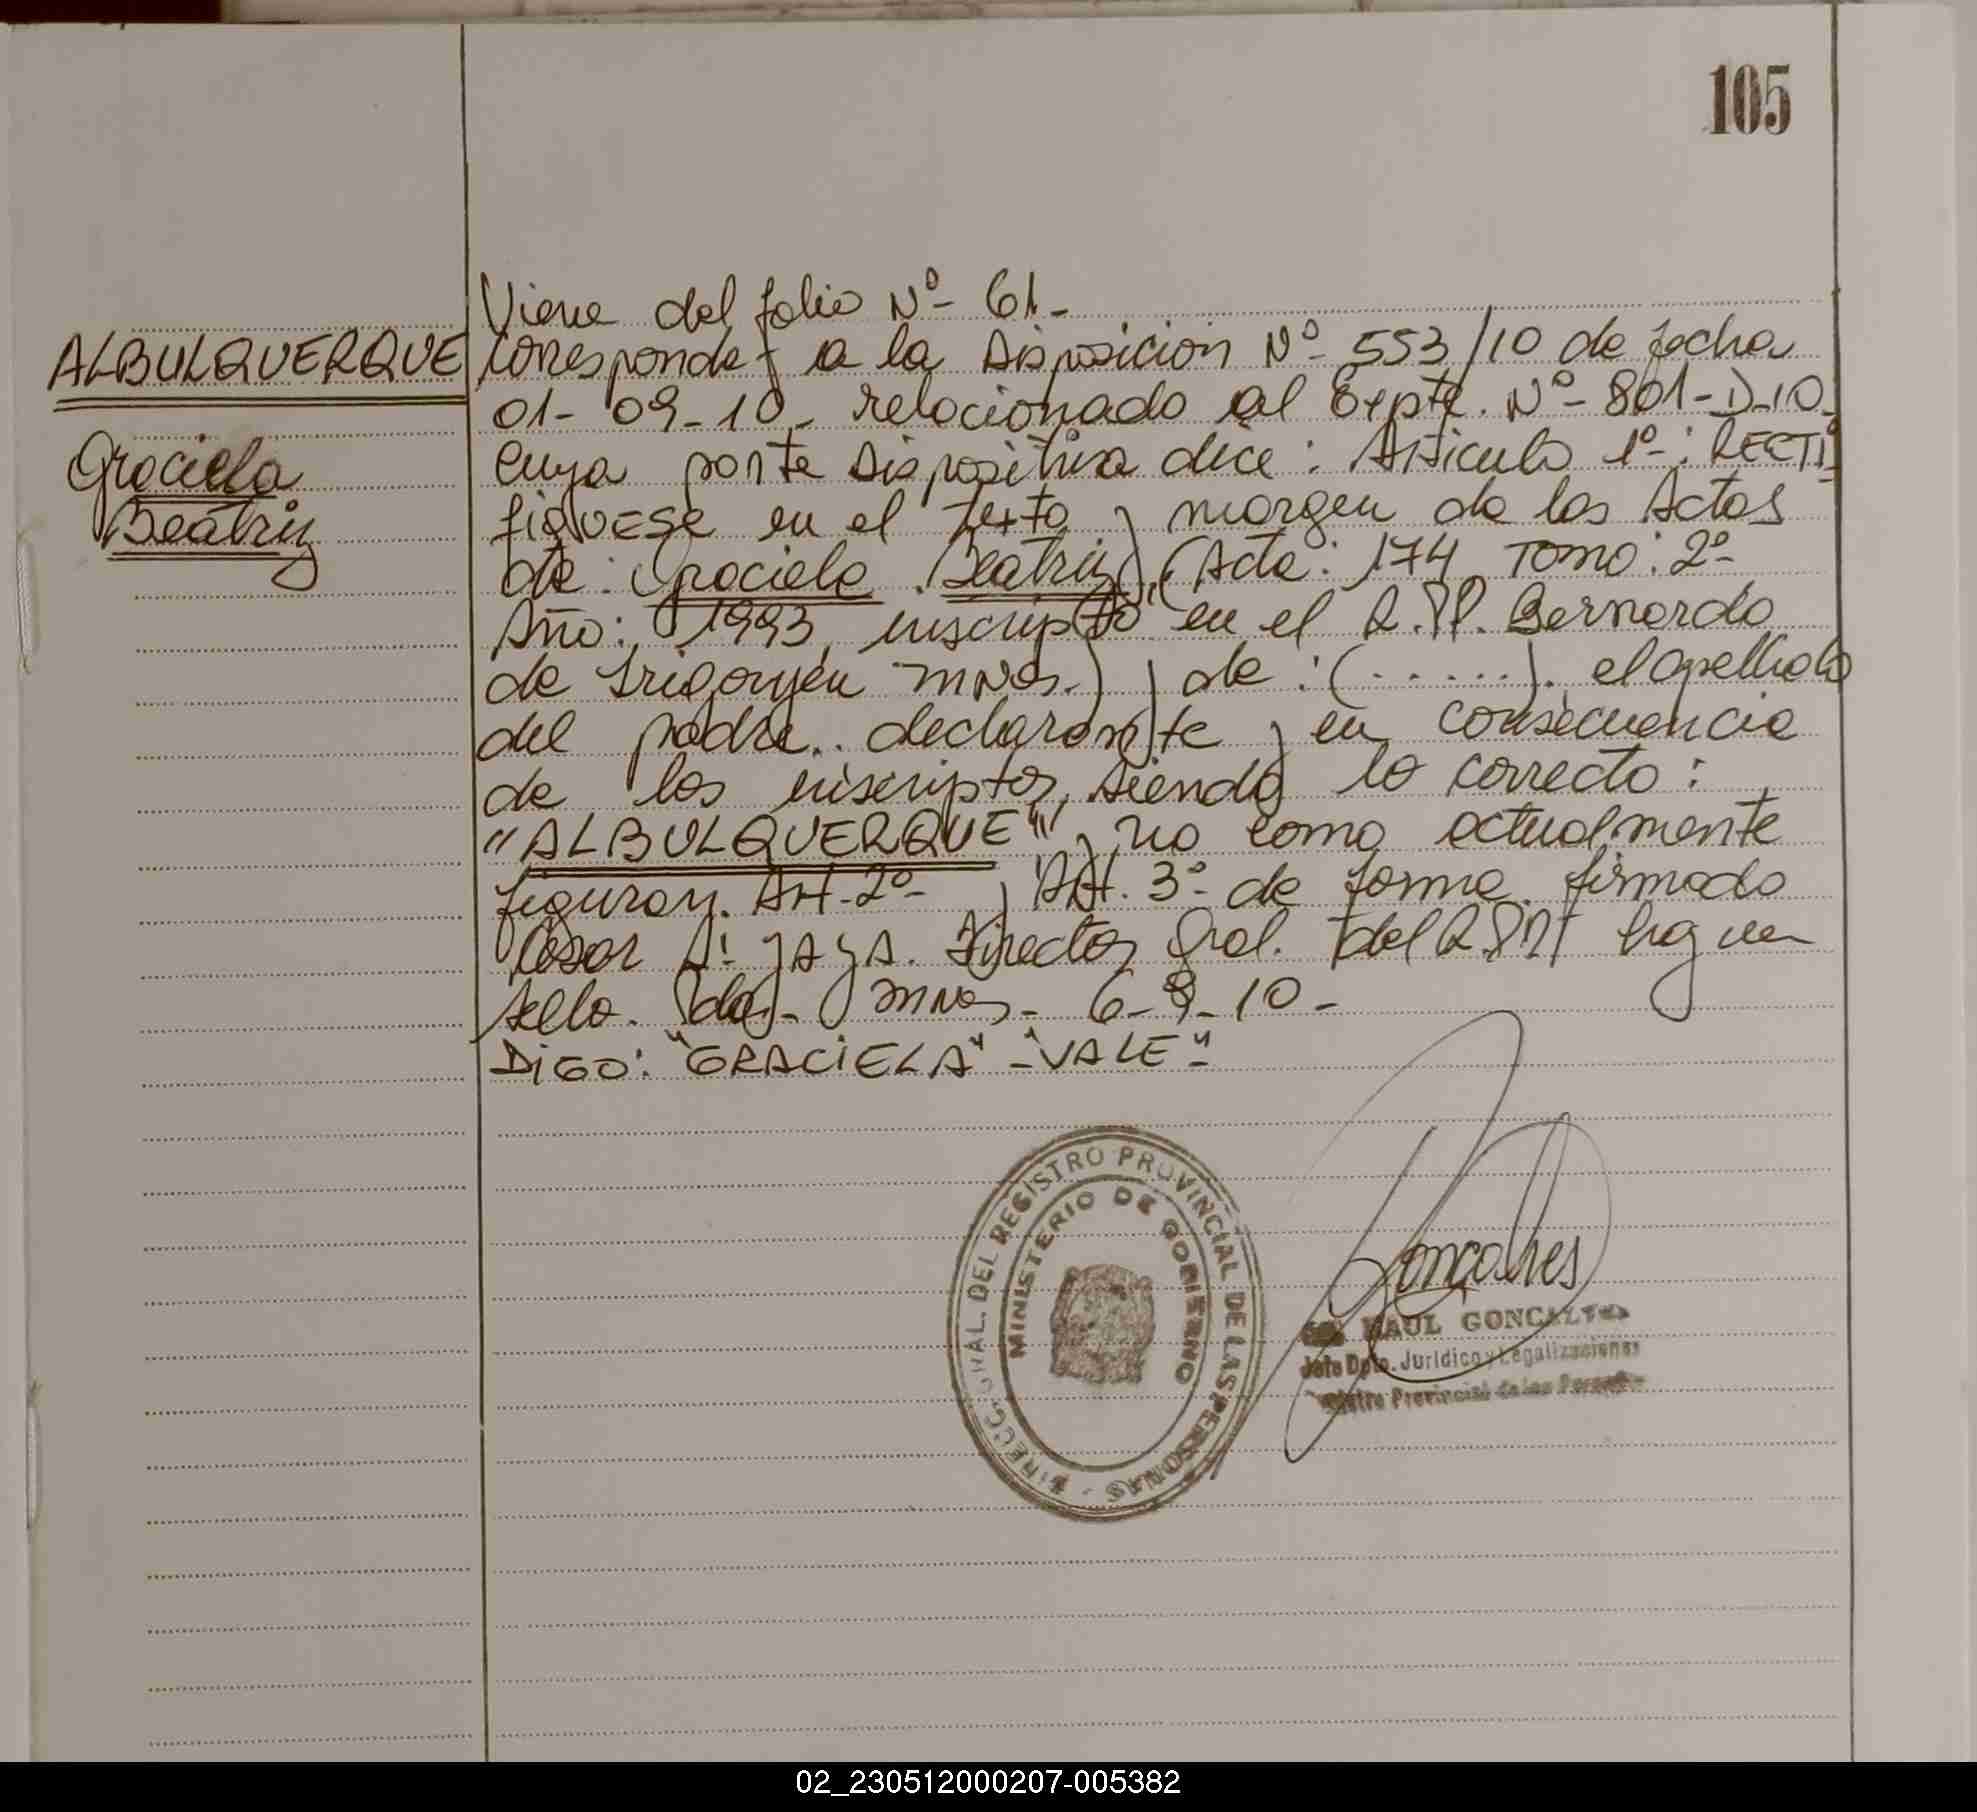 105
Viene del folio Nº- 61.-
ALBULQUERQUE
Corresponde a la Disposicion Nº- 553/10 de fecha
01-09-10- relacionado al Expte. Nº- 801-D-10-
Graciela
cuya parte dispositiva dice: Articulo 1º-: RECTI-
Beatriz
fiQUESE en el texto y margen de las Actas
de: Graciela Beatriz, (Acta: 174 Tomo: 2º-
Año: 1993, inscripto en el R.P.P. Bernardo
de Irigoyen Mnes.) y de: (......). el apellido
del padre.. declarante y en consecuencia
de los inscriptos, siendo lo correcto:
"ALBULQUERQUE" y no como actualmente
figuran. Art. 2º- y Art. 3º- de forma. firmado
Cesar A. Director Gral. del R.P.P. hay un
sello. Pdas- Mnes- 6-9-10-
DIGO: "GRACIELA" - "VALE"-
DIRECC. GRAL. DEL REGISTRO PROVINCIAL DE LAS PERSONAS
MINISTERIO DE GOBIERNO
Gonçalves
RAUL GONCALVES
Jefe Dpto. Jurídico y Legalizaciones
Registro Provincial de las Personas
02_230512000207-005382